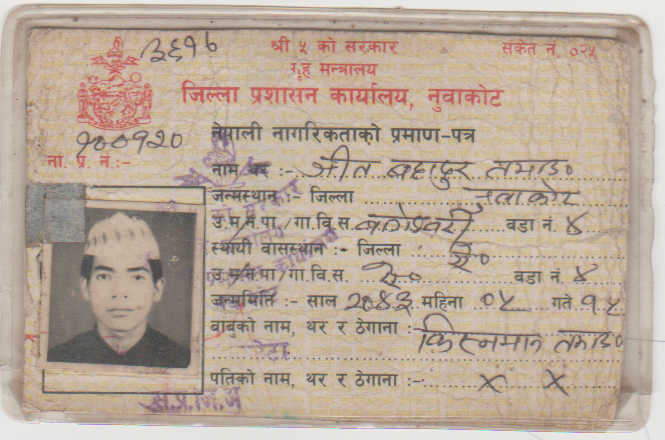 ३६१७
श्री ५ को सरकार
संकेत नं. ०२५
गृह मन्त्रालय
जिल्ला प्रशासन कार्यालय, नुवाकोट
१००१२०
ना. प्र. नं.:-
नेपाली नागरिकताको प्रमाण-पत्र
नाम थर :- जीत बहादुर तामाङ
जन्मस्थान :- जिल्ला नुवाकोट
उ.म.न.पा./गा.वि.स. वडा नं. ४
स्थायी वासस्थान :- जिल्ला ऐ०
उ.म.न.पा/गा.वि.स. ऐ० वडा नं. ४
जन्ममिति :- साल २०४३ महिना ०५ गते १५
बाबुको नाम, थर र ठेगाना : तामाङ
पतिको नाम, थर र ठेगाना :- x x